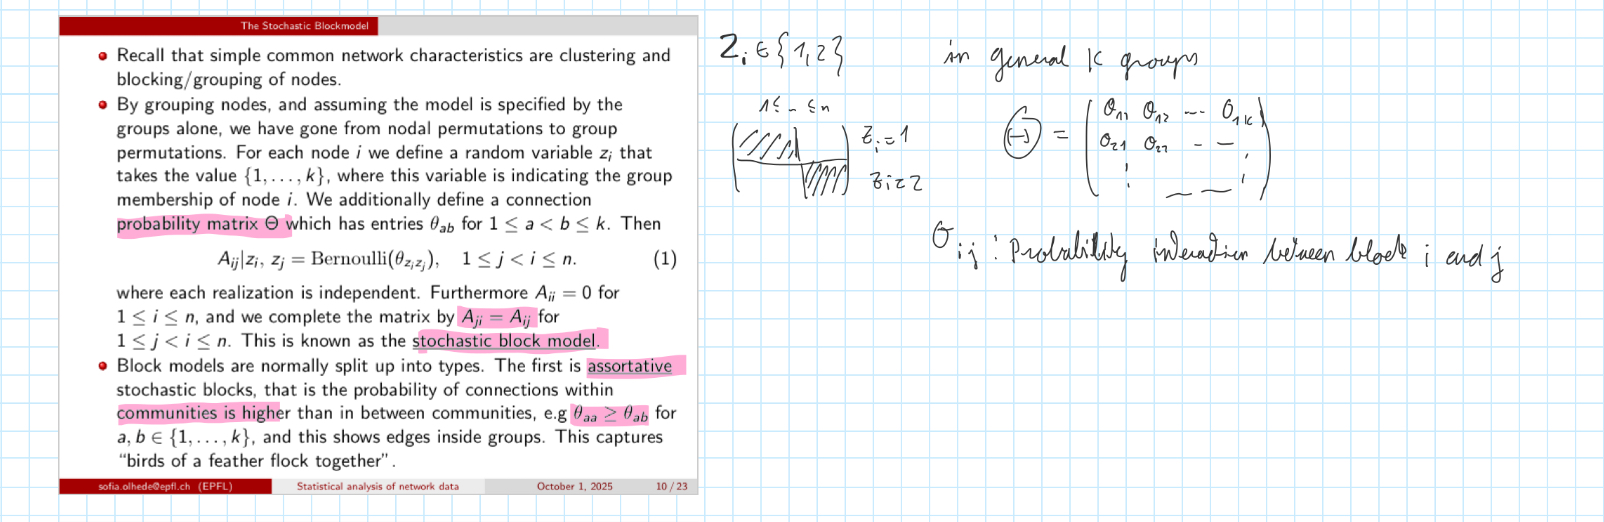 The Stochastic Blockmodel
Recall that simple common network characteristics are clustering and
blocking/grouping of nodes.
By grouping nodes, and assuming the model is specified by the
groups alone, we have gone from nodal permutations to group
permutations. For each node i we define a random variable zᵢ that
takes the value {1, . . . , k}, where this variable is indicating the group
membership of node i. We additionally define a connection
probability matrix Θ which has entries θ_ab for 1 ≤ a < b ≤ k. Then
A_ij|z_i, z_j = Bernoulli(θ_{z_i z_j}), 1 ≤ j < i ≤ n. (1)
where each realization is independent. Furthermore A_ii = 0 for
1 ≤ i ≤ n, and we complete the matrix by A_ji = A_ij for
1 ≤ j < i ≤ n. This is known as the stochastic block model.
Block models are normally split up into types. The first is assortative
stochastic blocks, that is the probability of connections within
communities is higher than in between communities, e.g θ_aa ≥ θ_ab for
a, b ∈ {1, . . . , k}, and this shows edges inside groups. This captures
“birds of a feather flock together”.
sofia.olhede@epfl.ch (EPFL) Statistical analysis of network data October 1, 2025 10 / 23
Z_i ∈ {1,2}
1 ≤ - ≤ n
z_i = 1
z_i = 2
in general K groups
Θ = ( θ_11 θ_12 --- θ_1K
θ_21 θ_22 - -
)
θ_ij : Probability interaction between block i and j